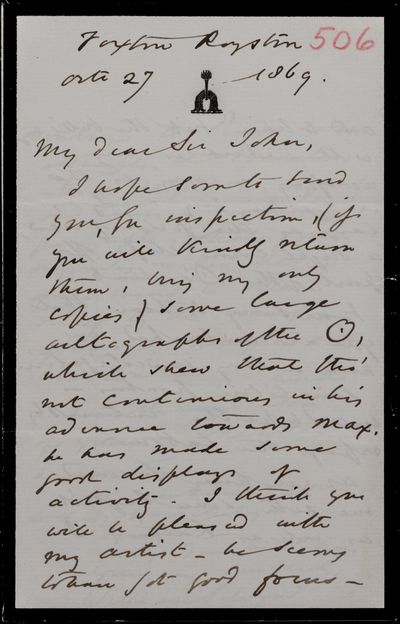 Foxton Royston 506
Octr 27 1869.
My dear Sir John,
I hope soon to send
you, for inspection, (if
you will kindly return
them, being my only
copies) some large
autographs of the ☉,
which shew that tho'
not continuous in his
advance towards max.
he has made some
good displays of
activity. I think you
will be pleased with
my artist – he seems
to have got good focus –